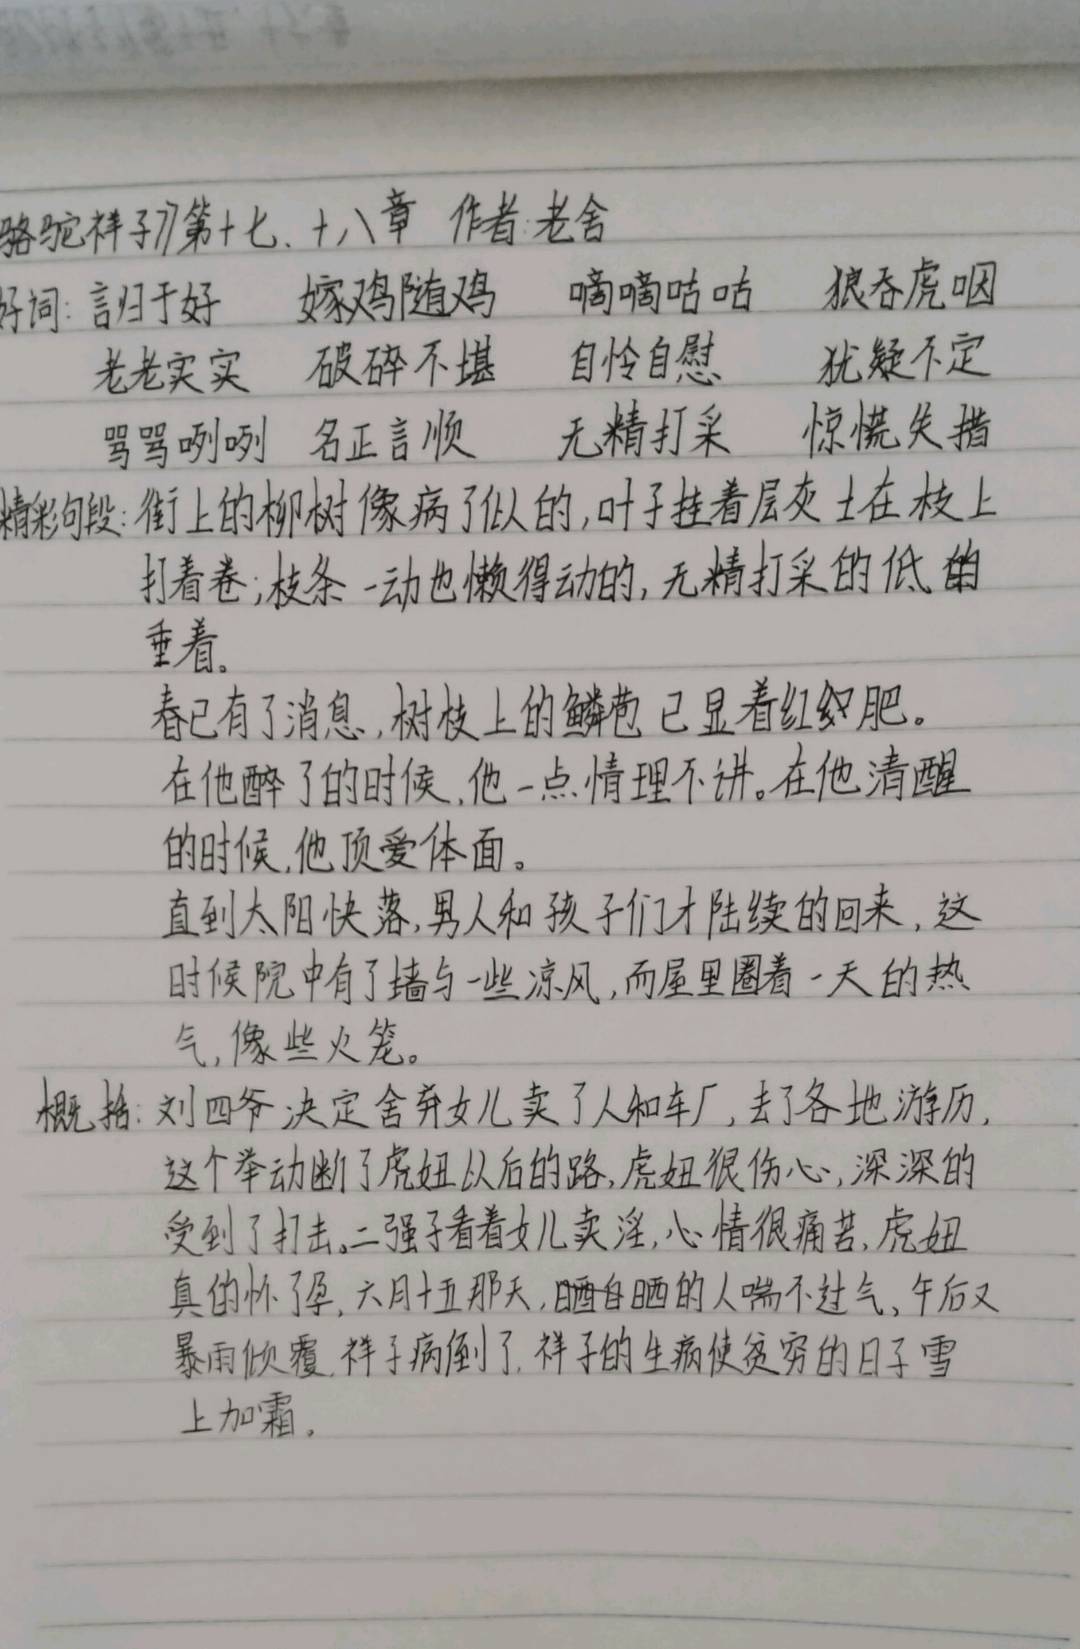 骆驼祥子》第十七、十八章 作者:老舍
好词: 言归于好 嫁鸡随鸡 嘀嘀咕咕 狼吞虎咽
老老实实 破碎不堪 自怜自慰 犹疑不定
骂骂咧咧 名正言顺 无精打采 惊慌失措
精彩句段: 街上的柳树像病了似的,叶子挂着层灰土在枝上
打着卷;枝条一动也懒得动的,无精打采的低
垂着。
春已有了消息,树枝上的鳞苞已显着红肥。
在他醉了的时候,他一点情理不讲。在他清醒
的时候,他顶爱体面。
直到太阳快落,男人和孩子们才陆续的回来,这
时候院中有了墙与一些凉风,而屋里圈着一天的热
气,像些火笼。
概括: 刘四爷决定舍弃女儿卖了人和车厂,去了各地游历,
这个举动断了虎妞以后的路,虎妞很伤心,深深的
受到了打击。二强子看着女儿卖淫,心情很痛苦,虎妞
真的怀了孕,六月十五那天,晒的人喘不过气、午后又
暴雨倾覆,祥子病倒了,祥子的生病使贫穷的日子雪
上加霜。